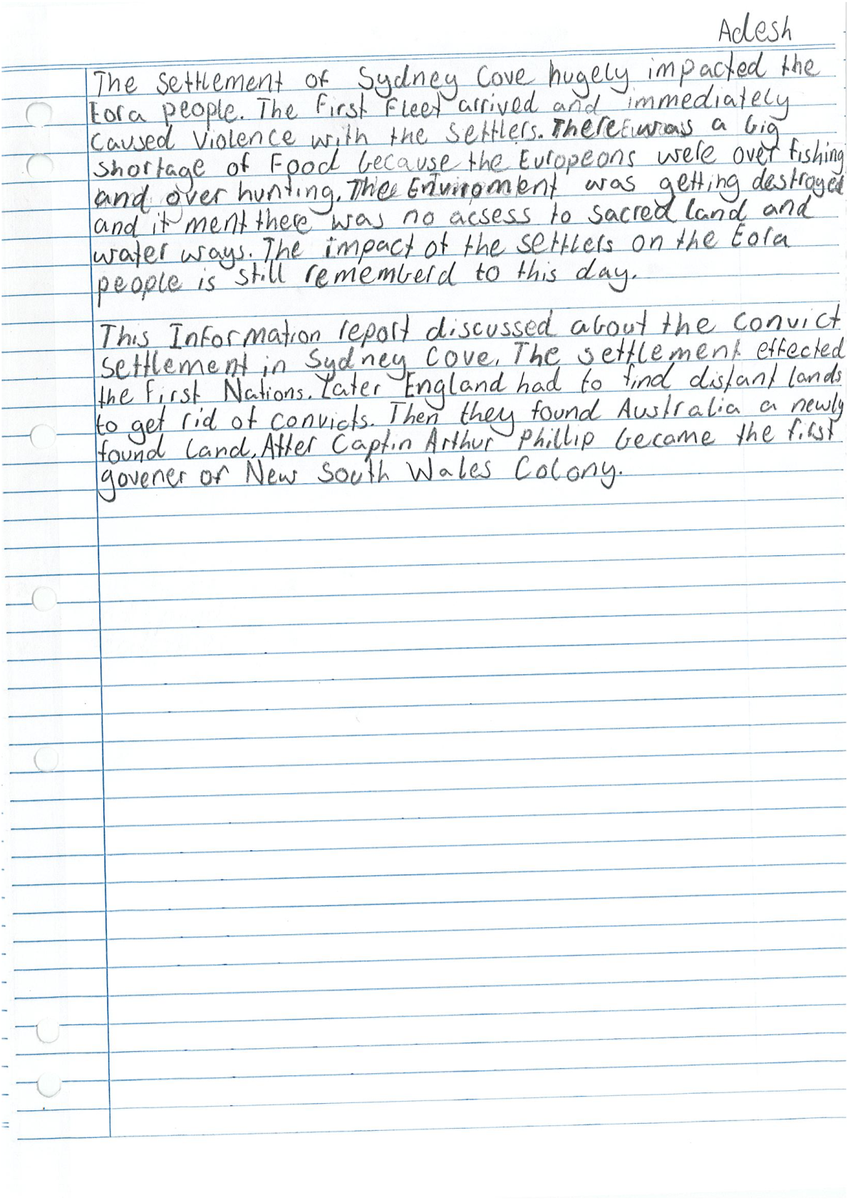 Adesh
The settlement of Sydney Cove hugely impacted the
Eora people. The First Fleet arrived and immediately
caused violence with the settlers. There was a big
shortage of Food because the Europeons were over fishing
and over hunting. The Envirnoment was getting destroyed
and it ment there was no acsess to sacred land and
water ways. The impact of the settlers on the Eora
people is still rememberd to this day.
This Information report discussed about the convict
settlement in Sydney Cove. The settlement effected
the First Nations. Later England had to find distant lands
to get rid of convicts. Then they found Australia a newly
found land. After Captin Arthur Phillip became the first
govener of New South Wales Colony.